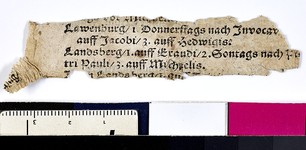 Lawenburg/ 1. Donnerstags nach Invocav
auff Jacobi/ 3. auff Hedwigis.
Landsberg/ 1. auff Exaudi/ 2. Sontags nach Pe
tri Pauli/ 3. auff Michaelis.
Landsberg/ 1. auff